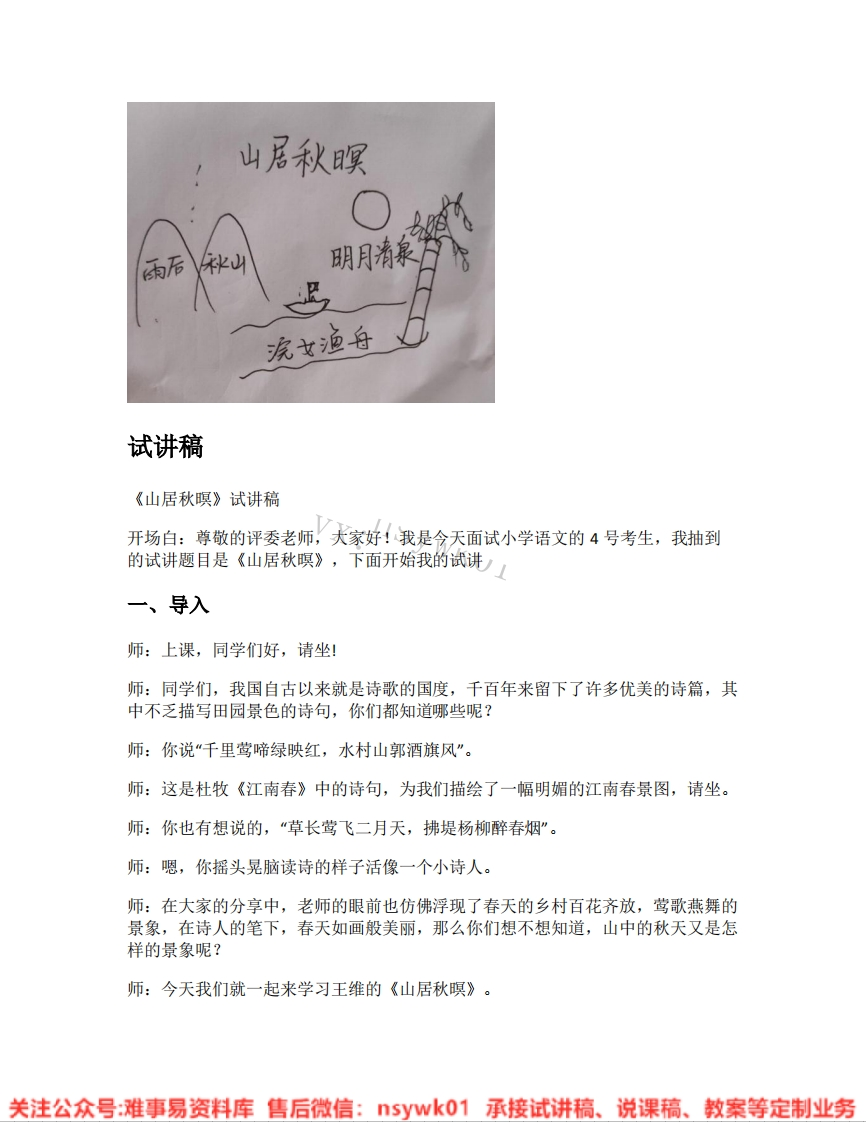 山居秋暝
雨后
秋山
明月清泉
浣女渔舟
试讲稿
《山居秋暝》试讲稿
开场白：尊敬的评委老师，大家好！我是今天面试小学语文的 4 号考生，我抽到
的试讲题目是《山居秋暝》，下面开始我的试讲
一、导入
师：上课，同学们好，请坐!
师：同学们，我国自古以来就是诗歌的国度，千百年来留下了许多优美的诗篇，其
中不乏描写田园景色的诗句，你们都知道哪些呢？
师：你说“千里莺啼绿映红，水村山郭酒旗风”。
师：这是杜牧《江南春》中的诗句，为我们描绘了一幅明媚的江南春景图，请坐。
师：你也有想说的，“草长莺飞二月天，拂堤杨柳醉春烟”。
师：嗯，你摇头晃脑读诗的样子活像一个小诗人。
师：在大家的分享中，老师的眼前也仿佛浮现了春天的乡村百花齐放，莺歌燕舞的
景象，在诗人的笔下，春天如画般美丽，那么你们想不想知道，山中的秋天又是怎
样的景象呢？
师：今天我们就一起来学习王维的《山居秋暝》。
关注公众号:难事易资料库 售后微信：nsywk01 承接试讲稿、说课稿、教案等定制业务